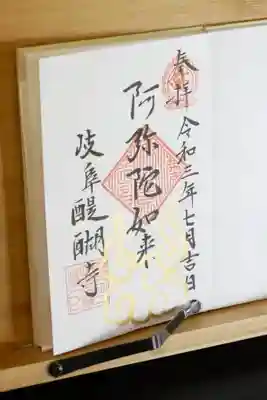 奉拝
令和三年七月吉日
阿弥陀如来
岐阜醍醐寺